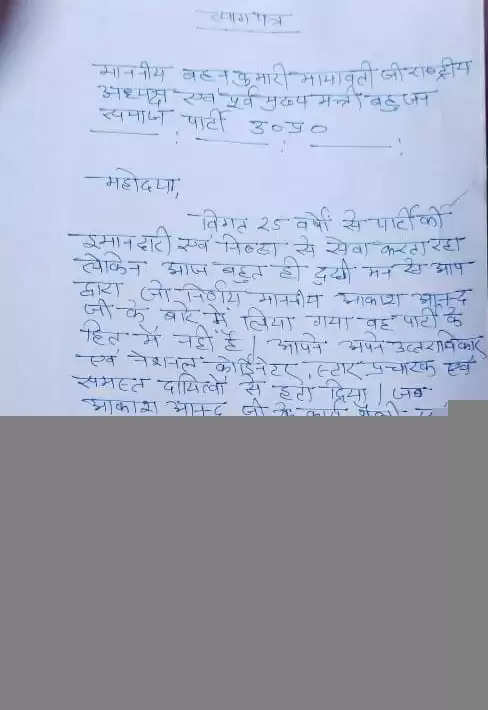 त्यागपत्र
माननीय बहन कुमारी मायावती जी राष्ट्रीय
अध्यक्ष एवं पूर्व मुख्य मन्त्री बहुजन
समाज पार्टी उ०प्र०
महोदया,
विगत 25 वर्षों से पार्टी की
इमानदारी एवं निष्ठा से सेवा करता रहा
लेकिन आज बहुत ही दुखी मन से आप
द्वारा जो निर्णय माननीय आकाश आनन्द
जी के बारे में लिया गया वह पार्टी के
हित में नहीं है। आपने अपने उत्तराधिकार
एवं नेशनल कोर्डिनेटर, स्टार प्रचारक एवं
समस्त दायित्वों से हटा दिया। जब
आकाश आनन्द जी के कार्य शैली